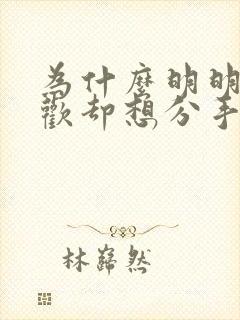 為什麼明明
歡却想分手
林巋然